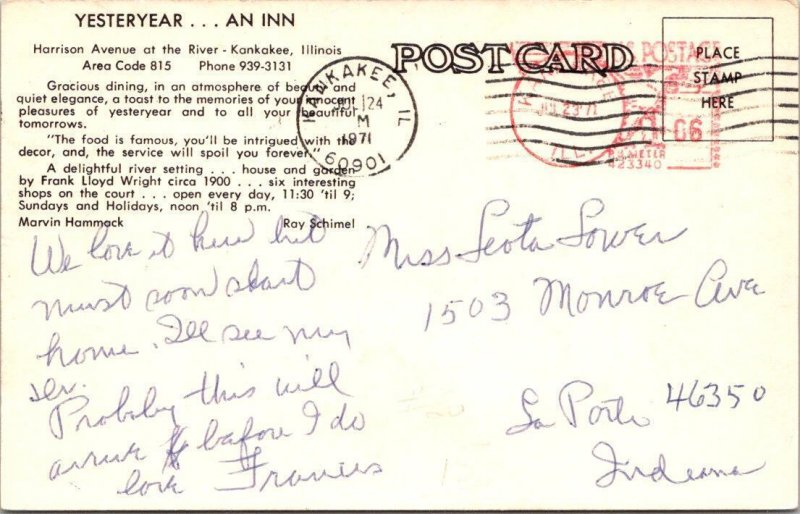 YESTERYEAR . . . AN INN
Harrison Avenue at the River - Kankakee, Illinois
Area Code 815 Phone 939-3131
Gracious dining, in an atmosphere of beauty and
quiet elegance, a toast to the memories of your innocent
pleasures of yesteryear and to all your beautiful
tomorrows.
"The food is famous, you'll be intrigued with the
decor, and, the service will spoil you forever."
A delightful river setting . . . house and garden
by Frank Lloyd Wright circa 1900 . . . six interesting
shops on the court . . . open every day, 11:30 'til 9;
Sundays and Holidays, noon 'til 8 p.m.
Marvin Hammack Ray Schimel
POST CARD
KANKAKEE, IL
24
M
1971
60901
U.S. POSTAGE
JUL 23 '71
06
METER
423340
PLACE
STAMP
HERE
We love it here but
must soon start
home. I'll see my
Probably this will
arrive before I do
love Frances
Miss Leota Lower
1503 Monroe Ave
La Porte 46350
Indiana